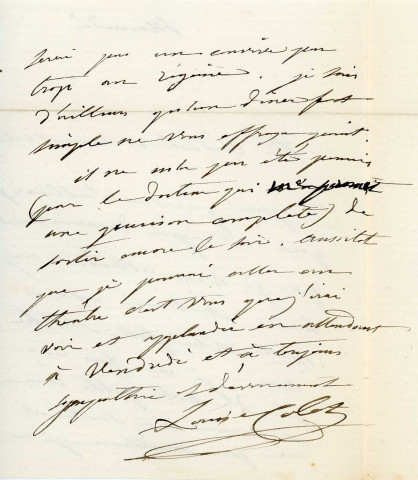 serai pas un convive par
trop au régime. je sais
d'ailleurs qu'un dîner fort
simple ne vous effraye point
il ne m'a pas été permis
(par le docteur qui me promet
une guérison complète) de
sortir encore le soir. aussitôt
que je pourrai aller au
théâtre c'est vous que j'irai
voir et applaudir en attendant
à Vendredi et à toujours
sympathie et dévouement
Louise Colet